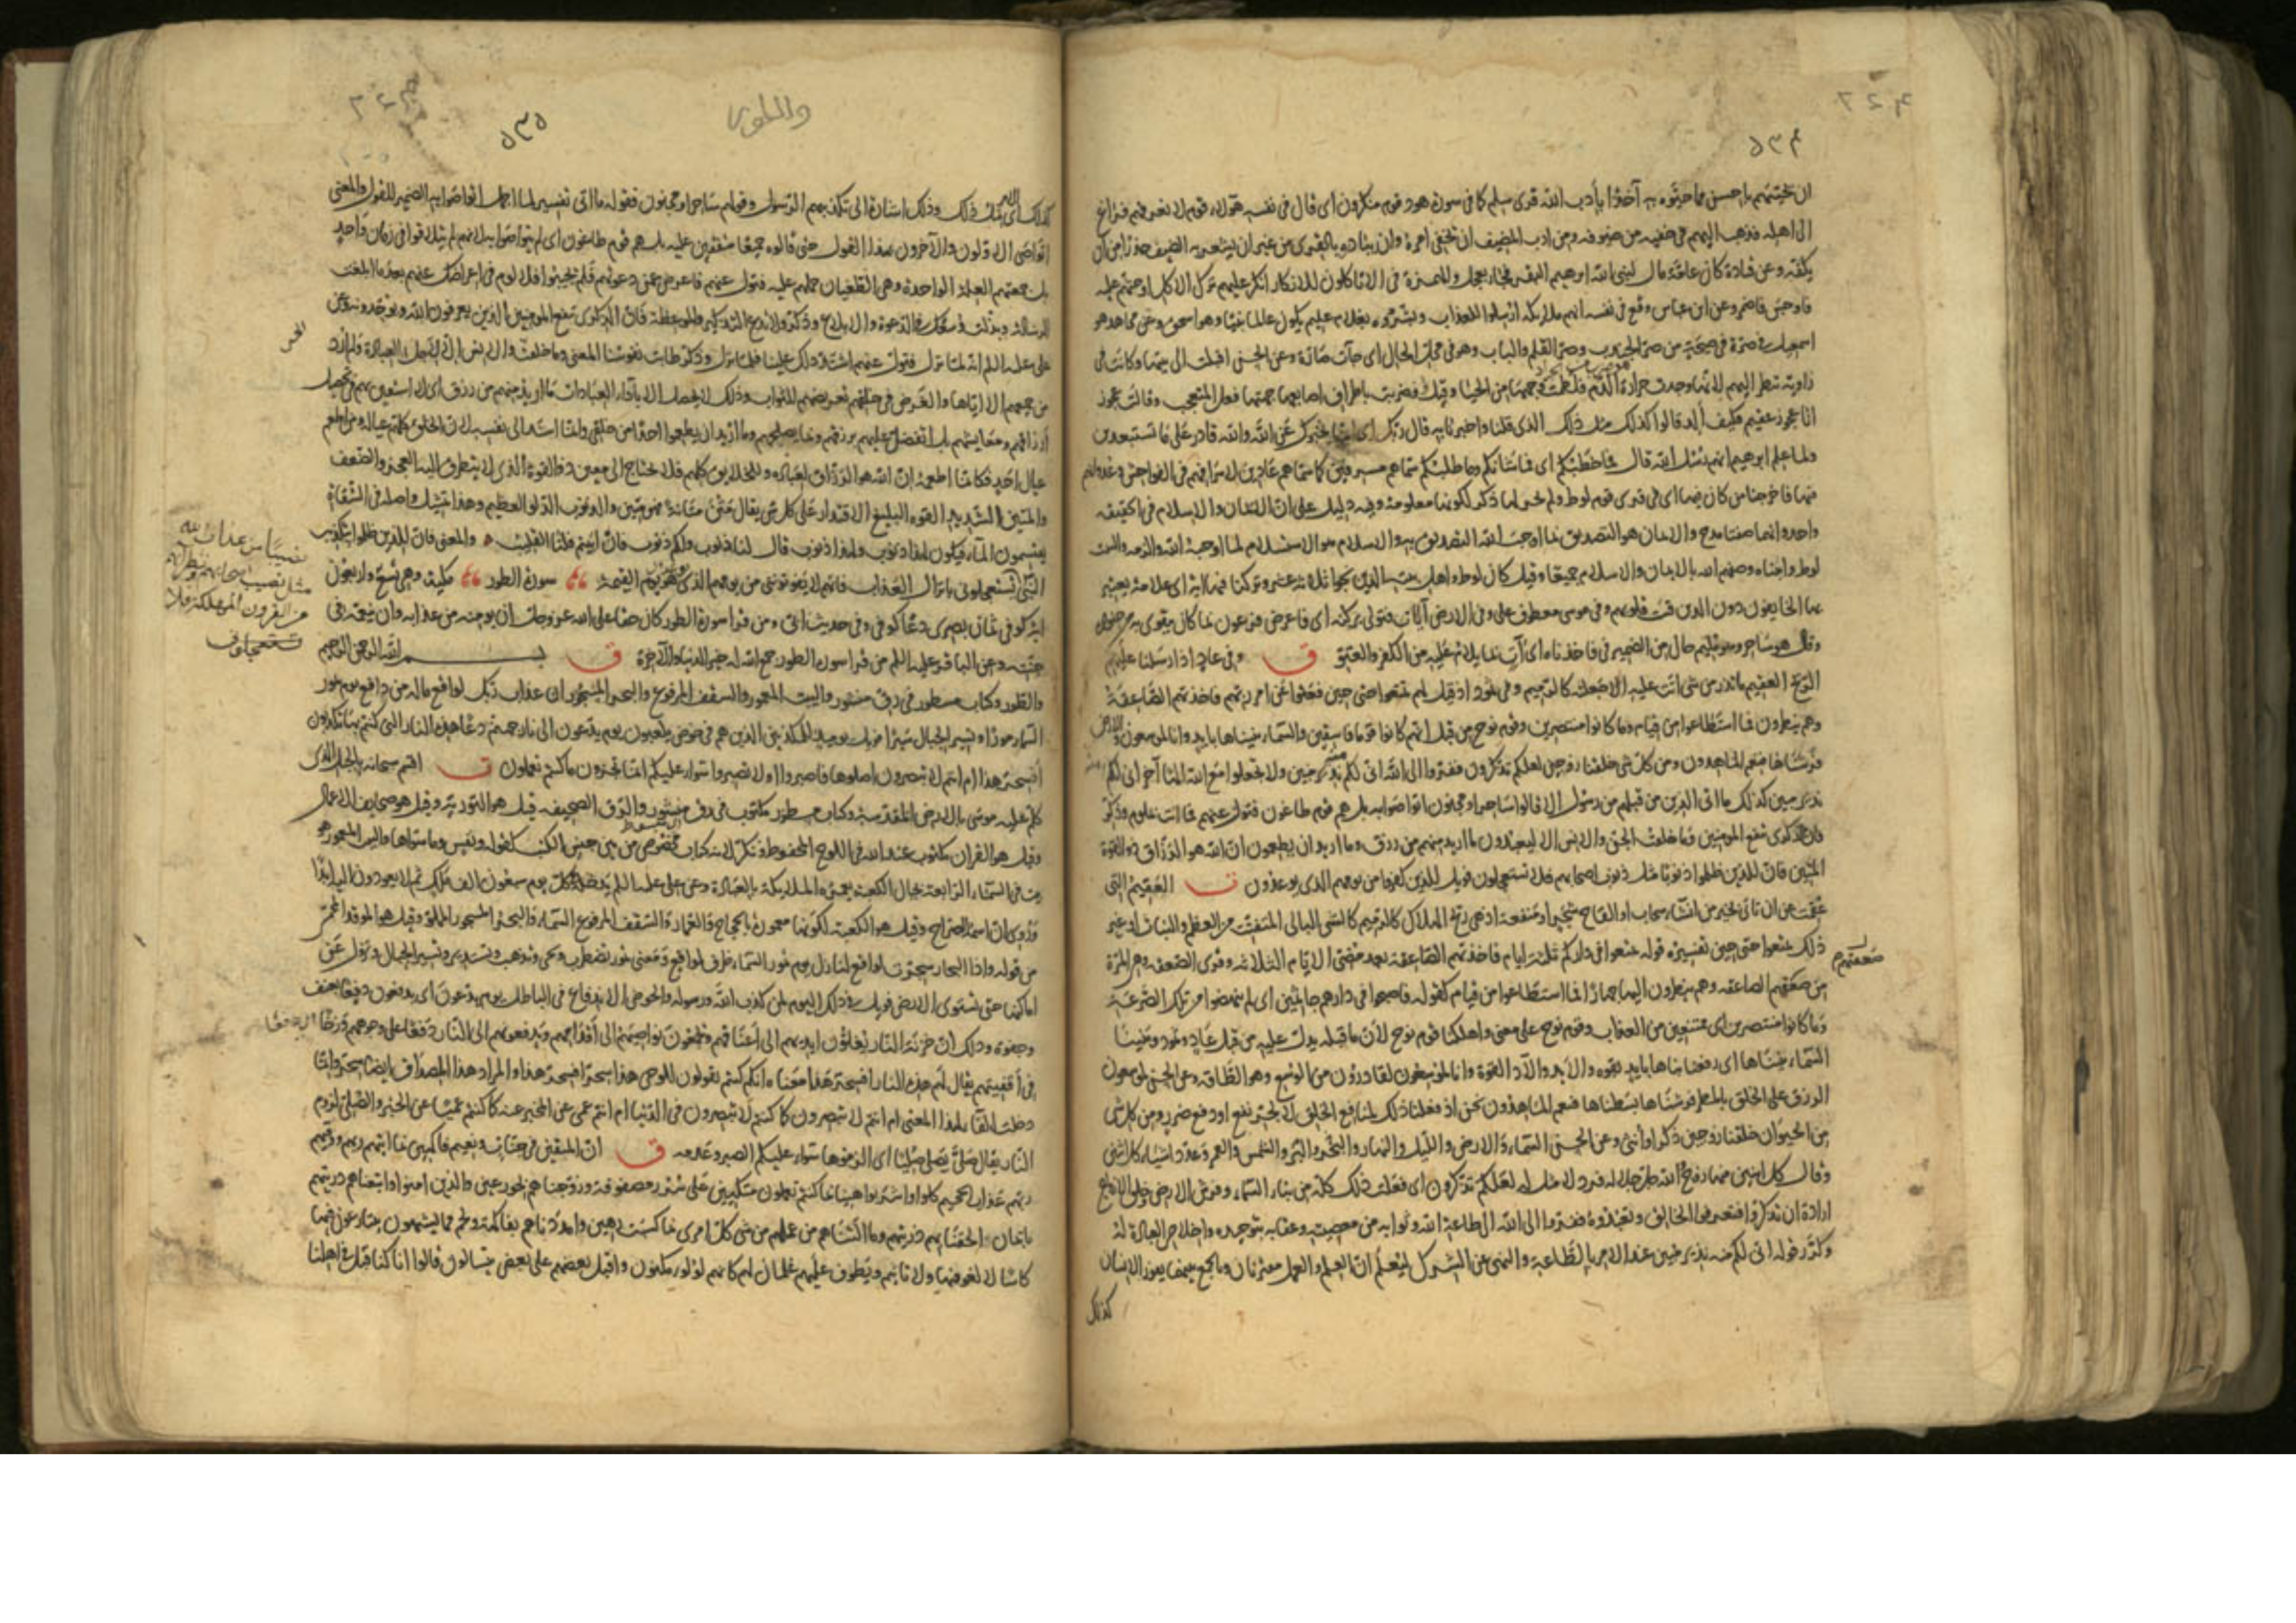 ٥٣٤
ان يحييهم باحسن مما حيوه به آخذا بأدب الله قرى سلم كما فى سورة هود قوم منكرون اى قال فى نفسه هؤلاء قوم لا نعرفهم فراغ
الى اهله فذهب اليهم فى خفية من ضيوفه ومن ادب المضيف ان يخفى امره وان يبادره بالقرى من غير ان يشعر به الضيف حذرا من ان
يكفه وعن قتادة كان عامة مال نبى الله ابرهيم البقر فجاء بعجل والهمزة فى الا تاكلون للانكار انكر عليهم ترك الاكل او حثهم عليه
فاوجس فاضمر وعن ابن عباس وقع فى نفسه انهم ملائكة ارسلوا للعذاب وبشروه بغلام عليم يكون عالما نبيا وهو اسحق وعن مجاهد هو
اسمعيل فى صرة فى صيحة من صر الجندب وصر القلم والباب وهو فى محل الحال اى جآت صارة وعن الحسن اقبلت الى بيتها وكانت فى
زاوية تنظر اليهم لانها وجدت حرارة الدم فلطمت وجهها من الحيا وقيل فضربت باطراف اصابعها جبهتها فعل المتعجب وقالت عجوز
انا عجوز عقيم فكيف ألد قالوا كذلك مثل ذلك الذى قلنا واخبرنا به قال ربك اى انما نخبرك عن الله والله قادر على ما تستبعدين
ولما علم ابرهيم انهم رسل الله قال فما خطبكم اى فما شانكم وما طلبكم سماهم مسرفين كما سماهم عادين لاسرافهم فى الفواحش وعدوانهم
فيها فاخرجنا من كان فيها اى فى قرى قوم لوط ولم يجر لها ذكر لكونها معلومة وفيه دليل على ان الايمان والاسلام فى الحقيقه
واحد وانهما صفتا مدح والايمان هو التصديق بما اوجب الله التصديق به والاسلام هو الاستسلام لما اوجبه الله والزمه والبيت
لوط وابنتاه وصفهم الله بالايمان والاسلام جميعا وقيل كان لوط واهل بيته الذين نجوا ثلاثه عشر وتركنا فيها اية اى علامة يعتبر
بها الخايفون دون الذين قست قلوبهم وفى موسى معطوف على وفى الارض آيات فتولى بركنه اى فاعرض فرعون بما كان يتقوى به من جنوده
وقال هو ساحر وهو مليم حال من الضمير فى فاخذناه اى آت بما يلام عليه من الكفر والعتو ق وفى عاد اذ ارسلنا عليهم
الريح العقيم ما تذر من شى اتت عليه الا جعلته كالرميم وفى ثمود اذ قيل لهم تمتعوا حتى حين فعتوا عن امر ربهم فاخذتهم الصاعقة
وهم ينظرون فما استطاعوا من قيام وما كانوا منتصرين وقوم نوح من قبل انهم كانوا قوما فاسقين والسماء بنيناها بايد وانا لموسعون والارض
فرشناها فنعم الماهدون ومن كل شى خلقنا زوجين لعلكم تذكرون ففروا الى الله انى لكم منه نذير مبين ولا تجعلوا مع الله الها آخر انى لكم منه
نذير مبين كذلك ما اتى الذين من قبلهم من رسول الا قالوا ساحر او مجنون اتواصوا به بل هم قوم طاغون فتول عنهم فما انت بملوم وذكر
فان الذكرى تنفع المومنين وما خلقت الجن والانس الا ليعبدون ما اريد منهم من رزق وما اريد ان يطعمون ان الله هو الرزاق ذو القوة
المتين فان للذين ظلموا ذنوبا مثل ذنوب اصحابهم فلا يستعجلون فويل للذين كفروا من يومهم الذى يوعدون ت العقيم التى
عقمت عن ان تاتى بخير من انشاء سحاب او القاح شجر او منفعة اذ هى ريح الهلاك كالرميم كالشى البالى المتفتت من العظم والنبات او غير
ذلك تمتعوا حتى حين تفسيره قوله تمتعوا فى داركم ثلثة ايام فاخذتهم الصاعقة بعد مضى الايام الثلاثه وقرى الصعقه وهى المرة
صعقتهم
من صعقتهم الصاعقه وهم ينظرون اليها جهارا فما استطاعوا من قيام كقوله فاصبحوا فى دارهم جاثمين اى لم ينهضوا من تلك الصرعة
وما كانوا منتصرين اى ممتنعين من العذاب وقوم نوح على معنى واهلكنا قوم نوح لأن ما قبله يدل عليه من قبل عاد وثمود وبنينا
السماء بنيناها اى رفعنا بناها بايد بقوه والايد والآد القوة وانا لموسعون لقادرون من الوسع وهو الطاقه وعن الحسن لموسعون
الرزق على الخلق بالمطر فرشناها بسطناها فنعم الماهدون نحن اذ فعلنا ذلك لمنافع الخلق لا لجر نفع او دفع ضرر ومن كل شى
من الحيوان خلقنا زوجين ذكرا وأنثى وعن الحسن السماء والارض والليل والنهار والبحر والبر والشمس والقمر وعدد اشياء كل اثنين
وقال كل اثنين منها زوج الله جل جلاله فرد لا مثل له لعلكم تذكرون اى فعلت ذلك كله من بناء السماء وفرش الارض وخلق الازواج
ارادة ان تذكروا فتعرفوا الخالق وتعبدوه ففروا الى الله الى طاعة الله وثوابه من معصيته وعقابه بتوحيده واخلاص العبادة له
وكرر قوله انى لكم منه نذير مبين عند الامر بالطاعة والنهى عن الشرك ليعلم ان العلم والعمل مقترنان وبالجمع بينهما يفوز الانسان
كذلك
والطور
٥٣٥
كذلك اى مثل ذلك وذلك اشارة الى تكذيبهم الرسول وقولهم ساحر او مجنون فقوله ما اتى تفسير لما اجمل اتواصوا به الضمير للقول والمعنى
اتواصى الاولون والآخرون بهذا القول حتى قالوه جميعا متفقين عليه بل هم قوم طاغون اى لم يتواصوا به لانهم لم يتلاقوا فى زمان واحد
بل جمعتهم العلة الواحدة وهى الطغيان حملهم عليه فتول عنهم فاعرض عن دعوتهم فلم يجيبوا فلا لوم فى اعراضك عنهم بعد ما ابلغت
الرسالة وبذلت وسعك فى الدعوة والابلاغ وذكر ولا تدع التذكير والموعظة فان الذكرى تنفع المومنين الذين يعرفون الله ويوحدونه وعن
على عليه السلم انه لما نزل فتول عنهم اشتد ذلك علينا فلما نزل وذكر طابت نفوسنا المعنى وما خلقت الجن والانس الا لاجل العبادة ولم ارد
من جميعهم الا اياها والغرض فى خلقهم تعريضهم للثواب وذلك لا يحصل الا باداء العبادات ما اريد منهم من رزق اى لا استعين بهم فى تحصيل
أرزاقهم ومعايشهم بل اتفضل عليهم برزقهم وبما يصلحهم وما اريد ان يطعموا احدا من خلقى وانما اسند الى نفسه لان الخلق كلهم عياله ومن اطعم
عيال احد فكانما اطعمه ان الله هو الرزاق لعباده وللخلايق كلهم فلا يحتاج الى معين ذو القوة الذى لا يتطرق اليه العجز والضعف
والمتين الشديد القوه البليغ الاقتدار على كل شى يقال متن متانة فهو متين والذنوب الدلو العظيم وهذا تمثيل واصله فى السقاة
يقتسمون الماء فيكون لهذا ذنوب ولهذا ذنوب قال لنا ذنوب ولكم ذنوب فان ابيتم فلنا القليب والمعنى فان للذين ظلموا بتكذيب
النبى
نصيبا من عذاب الله
مثل نصيب اصحابهم ونظرائهم
من القرون المهلكة فلا
يستعجلون
يستعجلونى بانزال العذاب فانهم لا يفوتوننى من يومهم الذى يوعدون هو يوم القيمة سورة الطور مكية وهى تسع واربعون
آية كوفى ثمان بصرى دعا كوفى وفى حديث ابى ومن قرا سورة الطور كان حقا على الله عز وجل ان يومنه من عذابه وان ينعمه فى
جنته وعن الباقر عليه السلم من قرا سورة الطور جمع الله له خير الدنيا والآخرة ق بسم الله الرحمن الرحيم
والطور وكتاب مسطور فى رق منشور والبيت المعمور والسقف المرفوع والبحر المسجور ان عذاب ربك لواقع ماله من دافع يوم تمور
السماء مورا وتسير الجبال سيرا فويل يوميذ للمكذبين الذين هم فى خوض يلعبون يوم يدعون الى نار جهنم دعا هذه النار التى كنتم بها تكذبون
أفسحر هذا ام انتم لا تبصرون اصلوها فاصبروا او لا تصبروا سواء عليكم انما تجزون ما كنتم تعملون ت اقسم سبحانه بالجبل الذى
كلم عليه موسى بالارض المقدسة وكتاب مسطور مكتوب فى رق منشور والرق الصحيفه قيل هو التورية وقيل هو صحايف الاعمال
وقيل هو القران مكتوب عند الله فى اللوح المحفوظ ونكر لانه كتاب مخصوص من بين جنس الكتب كقوله ونفس وما سواها والبيت المعمور هو
بيت فى السماء الرابعة بحيال الكعبه تعمره الملايكة بالعبادة وعن على عليه السلم يدخله كل يوم سبعون الف ملك ثم لا يعودون اليه ابدا
وروى ان اسمه الضراح وقيل هو الكعبة لكونها معمورة بالحجاج والعمار والسقف المرفوع السماء والبحر المسجور المملو وقيل هو الموقد المحمر
من قوله واذا البحار سجرت لواقع لنازل يوم تمور السماء ظرف لواقع ومعنى تمور تضطرب وتجى وتذهب وتستدير وتسير الجبال وتزول عن
اماكنها حتى تستوى الارض فويل فى ذلك اليوم لمن كذب الله ورسوله والخوض الاندفاع فى الباطل يوم يدعون اى يدفعون دفعا بعنف
وجفوة وذلك ان خزنة النار يغلون ايديهم الى أعناقهم ويجمعون نواصيهم الى أقدامهم ويدفعونهم الى النار دفعا على وجوههم وزخا
فى أقفيتهم يقال لهم هذه النار افسحر هذا معناه انكم كنتم تقولون للوحى هذا سحر افسحر هذا والمراد هذا المصداق ايضا سحر وانما
دخلت الفاء لهذا المعنى ام انتم لا تبصرون كما كنتم لا تبصرون فى الدنيا ام انتم عمى عن المخبر عنه كما كنتم عميا عن الخبر والصلى لزوم
النار يقال صلى يصلى صليا اى الزموها سواء عليكم الصبر وعدمه ق ان المتقين فى جنات ونعيم فاكهين بما اتيهم ربهم ووقيهم
ربهم عذاب الجحيم كلوا واشربوا هنيئا بما كنتم تعملون متكيين على سرر مصفوفة وزوجناهم بحور عين والذين امنوا واتبعتهم ذريتهم
بايمان الحقنا بهم ذريتهم وما التناهم من عملهم من شى كل امرى بما كسب رهين وامددناهم بفاكهة ولحم مما يشتهون يتنازعون فيها
كاسا لا لغو فيها ولا تاثيم ويطوف عليهم غلمان لهم كانهم لؤلؤ مكنون واقبل بعضهم على بعض يتسالون قالوا انا كنا قبل فى اهلنا